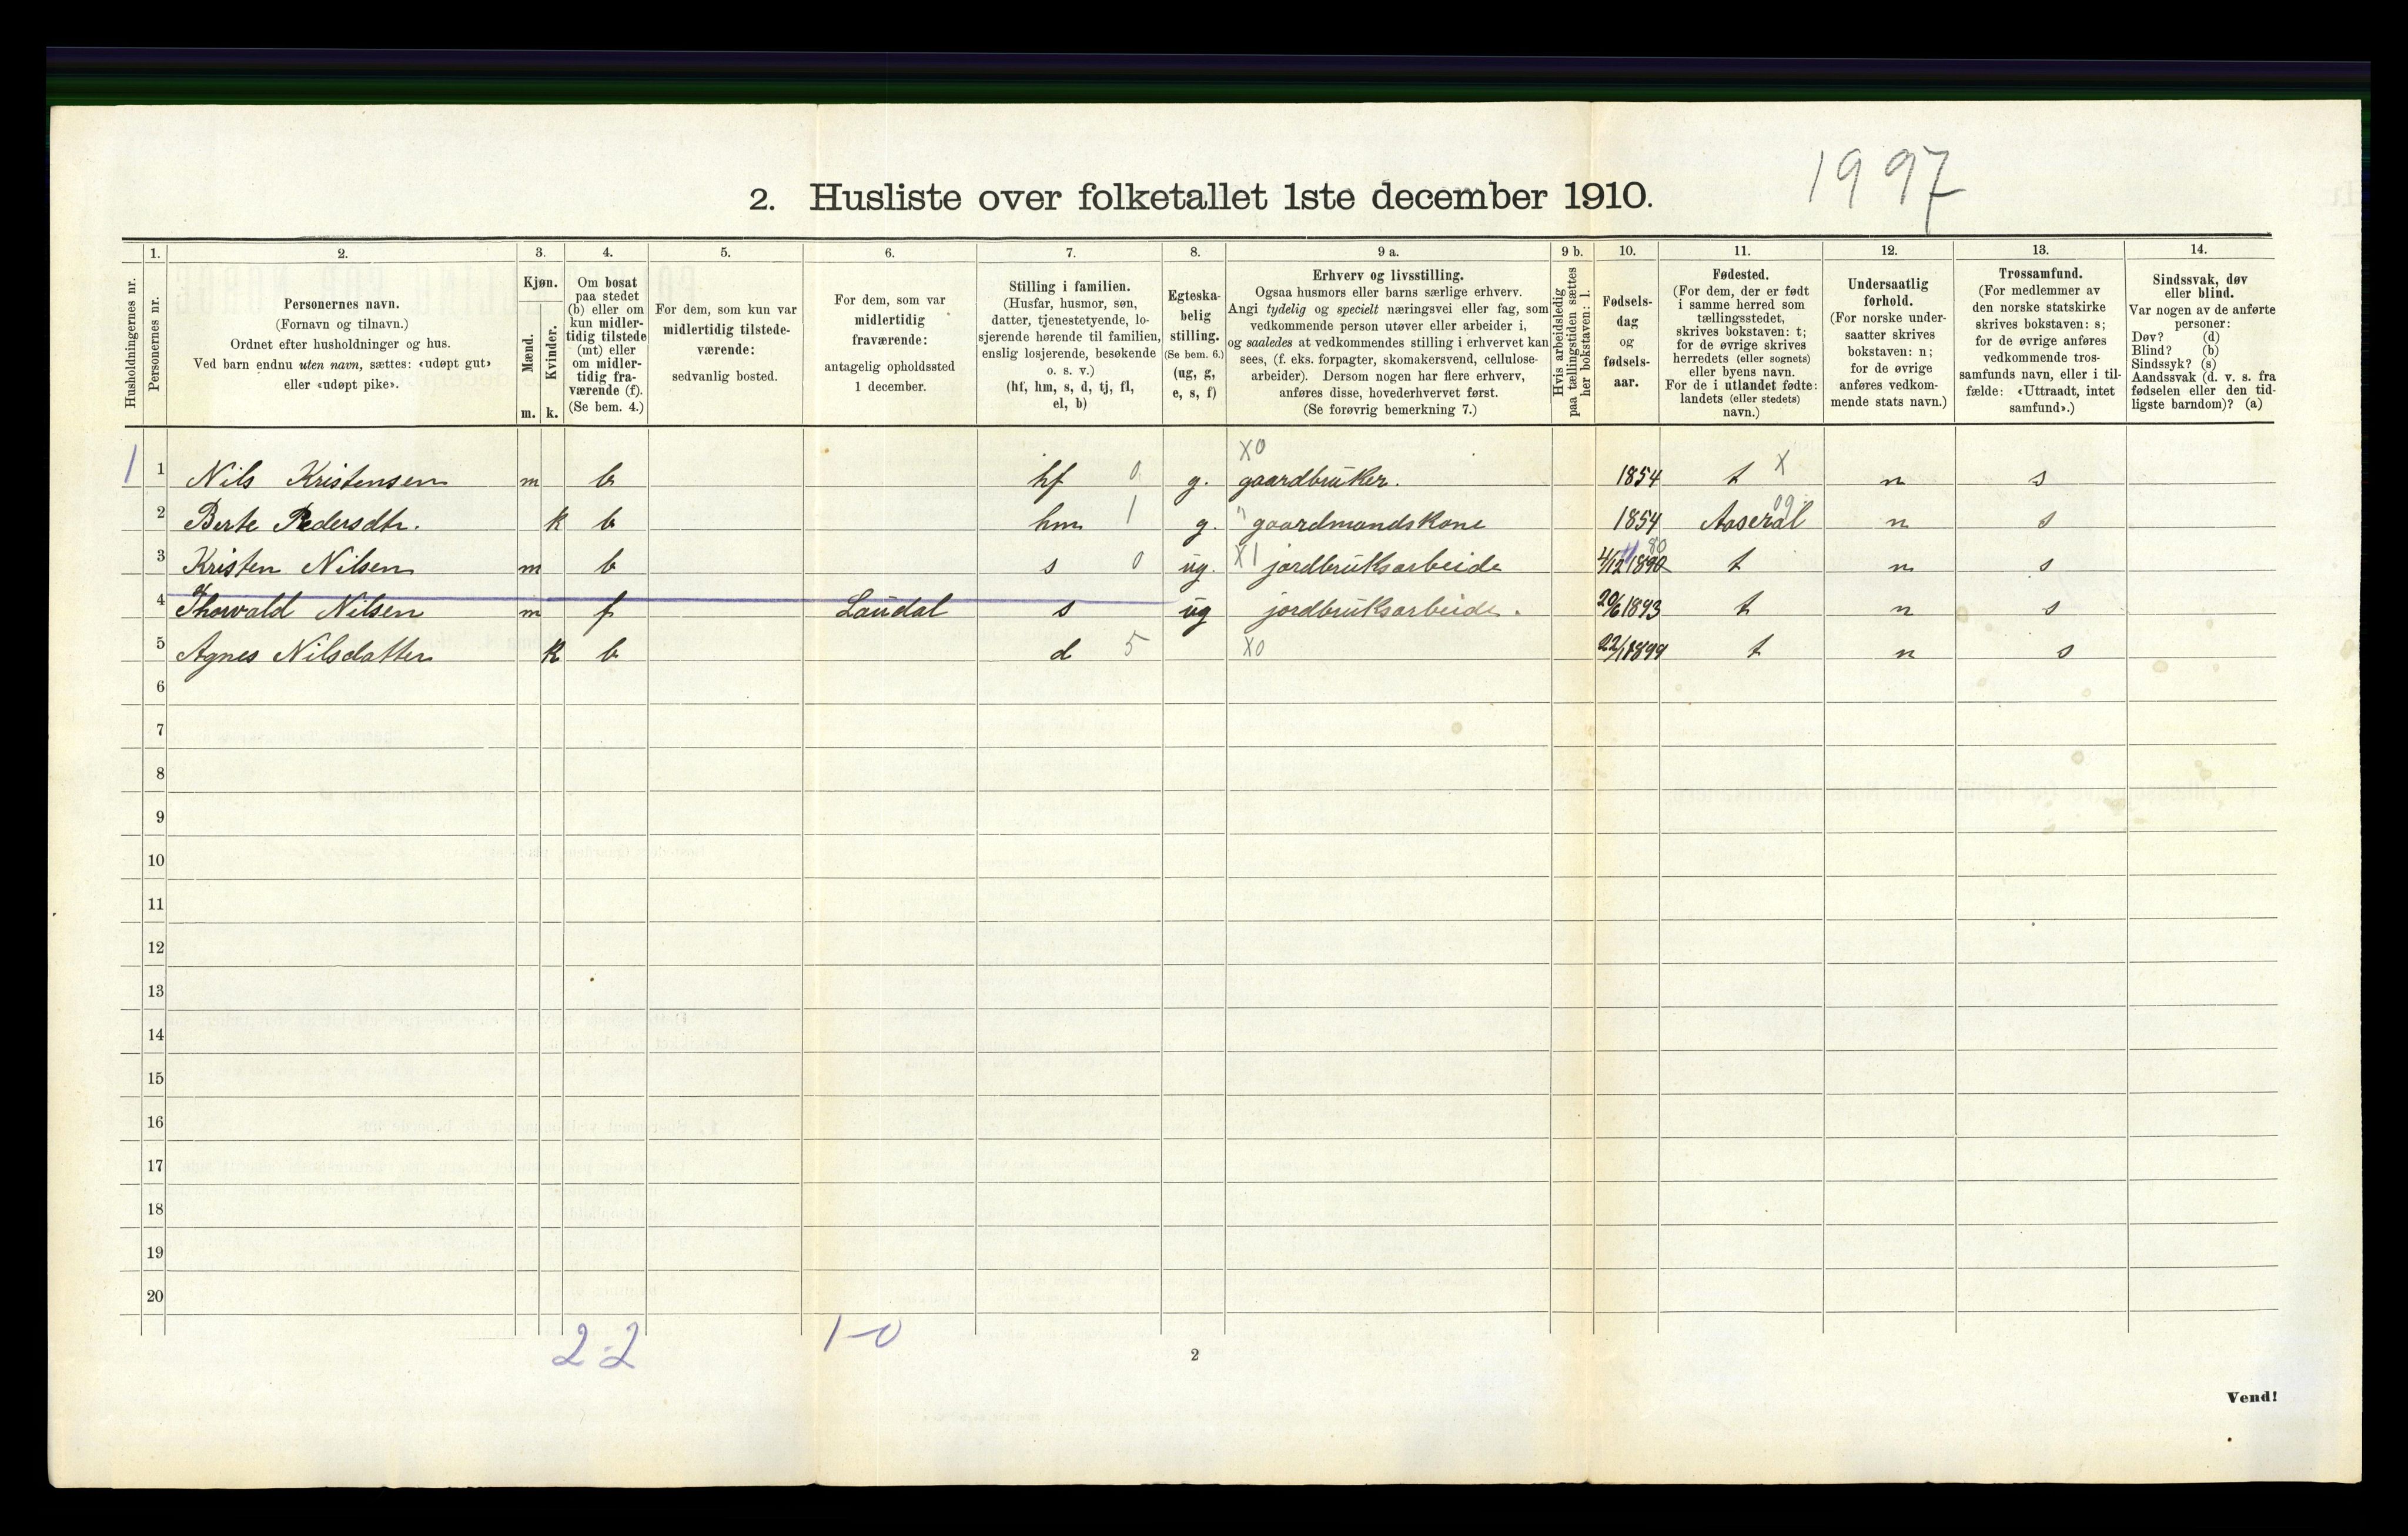 1997
2. Husliste over folketallet 1ste december 1910.
Husholdningernes nr.
1.
Personernes nr.
2.
Personernes navn.
(Fornavn og tilnavn.)
Ordnet efter husholdninger og hus.
Ved barn endnu uten navn, sættes: «udøpt gut»
eller «udøpt pike».
3.
Kjøn.
Mænd.
Kvinder.
m. k.
4.
Om bosat
paa stedet
(b) eller om
kun midler-
tidig tilstede
(mt) eller
om midler-
tidig fra-
værende (f).
(Se bem. 4.)
5.
For dem, som kun var
midlertidig tilstede-
værende:
sedvanlig bosted.
6.
For dem, som var
midlertidig
fraværende:
antagelig opholdssted
1 december.
7.
Stilling i familien.
(Husfar, husmor, søn,
datter, tjenestetyende, lo-
sjerende hørende til familien,
enslig losjerende, besøkende
o. s. v.)
(hf, hm, s, d, tj, fl,
el, b)
8.
Egteska-
belig
stilling.
(Se bem. 6.)
(ug, g,
e, s, f)
9 a.
Erhverv og livsstilling.
Ogsaa husmors eller barns særlige erhverv.
Angi tydelig og specielt næringsvei eller fag, som
vedkommende person utøver eller arbeider i,
og saaledes at vedkommendes stilling i erhvervet kan
sees, (f. eks. forpagter, skomakersvend, cellulose-
arbeider). Dersom nogen har flere erhverv,
anføres disse, hovederhvervet først.
(Se forøvrig bemerkning 7.)
9 b.
Hvis arbeidsledig
paa tællingstiden sættes
her bokstaven: l.
10.
Fødsels-
dag
og
fødsels-
aar.
11.
Fødested.
(For dem, der er født
i samme herred som
tællingsstedet,
skrives bokstaven: t;
for de øvrige skrives
herredets (eller sognets)
eller byens navn.
For de i utlandet fødte:
landets (eller stedets)
navn.)
12.
Undersaatlig
forhold.
(For norske under-
saatter skrives
bokstaven: n;
for de øvrige
anføres vedkom-
mende stats navn.)
13.
Trossamfund.
(For medlemmer av
den norske statskirke
skrives bokstaven: s;
for de øvrige anføres
vedkommende tros-
samfunds navn, eller i til-
fælde: «Uttraadt, intet
samfund».)
14.
Sindssvak, døv
eller blind.
Var nogen av de anførte
personer:
Døv? (d)
Blind? (b)
Sindssyk? (s)
Aandssvak (d. v. s. fra
fødselen eller den tid-
ligste barndom)? (a)
X0
1 1 Nils Kristensen m b hf 0 g. gaardbruker. 1854 t X n s
2 Berte Pedersdtr. k b hm 1 g. " gaardmandskone 1854 Aaseral 09 n s
3 Kristen Nilsen m b s 0 ug. X1 jordbruksarbeide 4/12 1890 80 t n s
4 Thorvald Nilsen m f Laudal s ug jordbruksarbeide. 20/6 1893 t n s
5 Agnes Nilsdatter k b d 5 X0 22/1 1899 t n s
6
7
8
9
10
11
12
13
14
15
16
17
18
19
20
2-2 1-0
2
Vend!